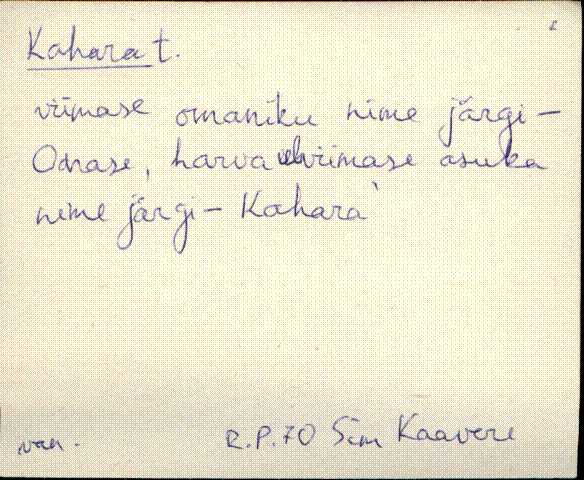 Kahara t.
viimase omaniku nime järgi –
Odrase, harva viimase asuka
nime järgi – Kahara
van.
R.P.70 Sim Kaavere